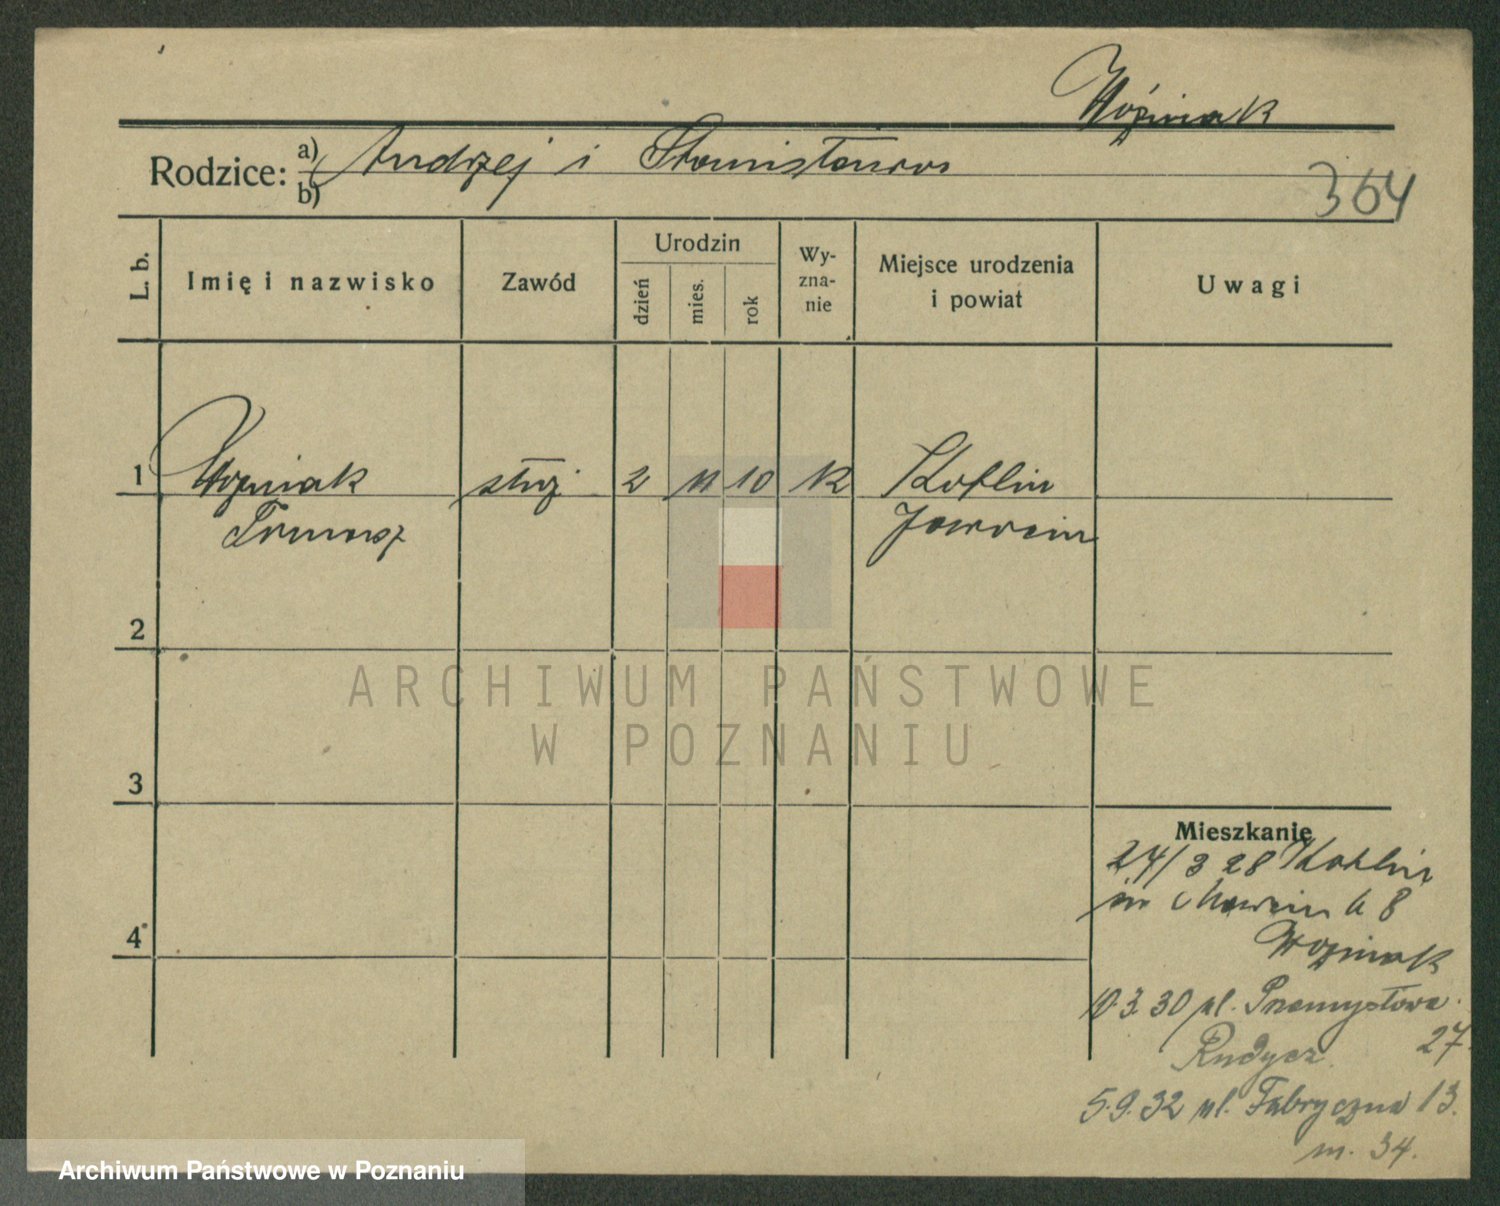 Woźniak
Rodzice: a) Andrzej i Stanisława
b)
364
L. b.
Imię i nazwisko
Zawód
Urodzin
dzień
mies.
rok
Wy-
zna-
nie
Miejsce urodzenia
i powiat
Uwagi
1 Woźniak służ 2 11 10 K Kotlin
Tomasz Jarocin
2
3
4
ARCHIWUM PAŃSTWOWE
W POZNANIU
Mieszkanie
24/3 28 Kotlin
8
Woźniak
10.3.30 ul. Przemysłowa
27
5.9.32 ul. Fabryczna 13.
m. 34.
Archiwum Państwowe w Poznaniu